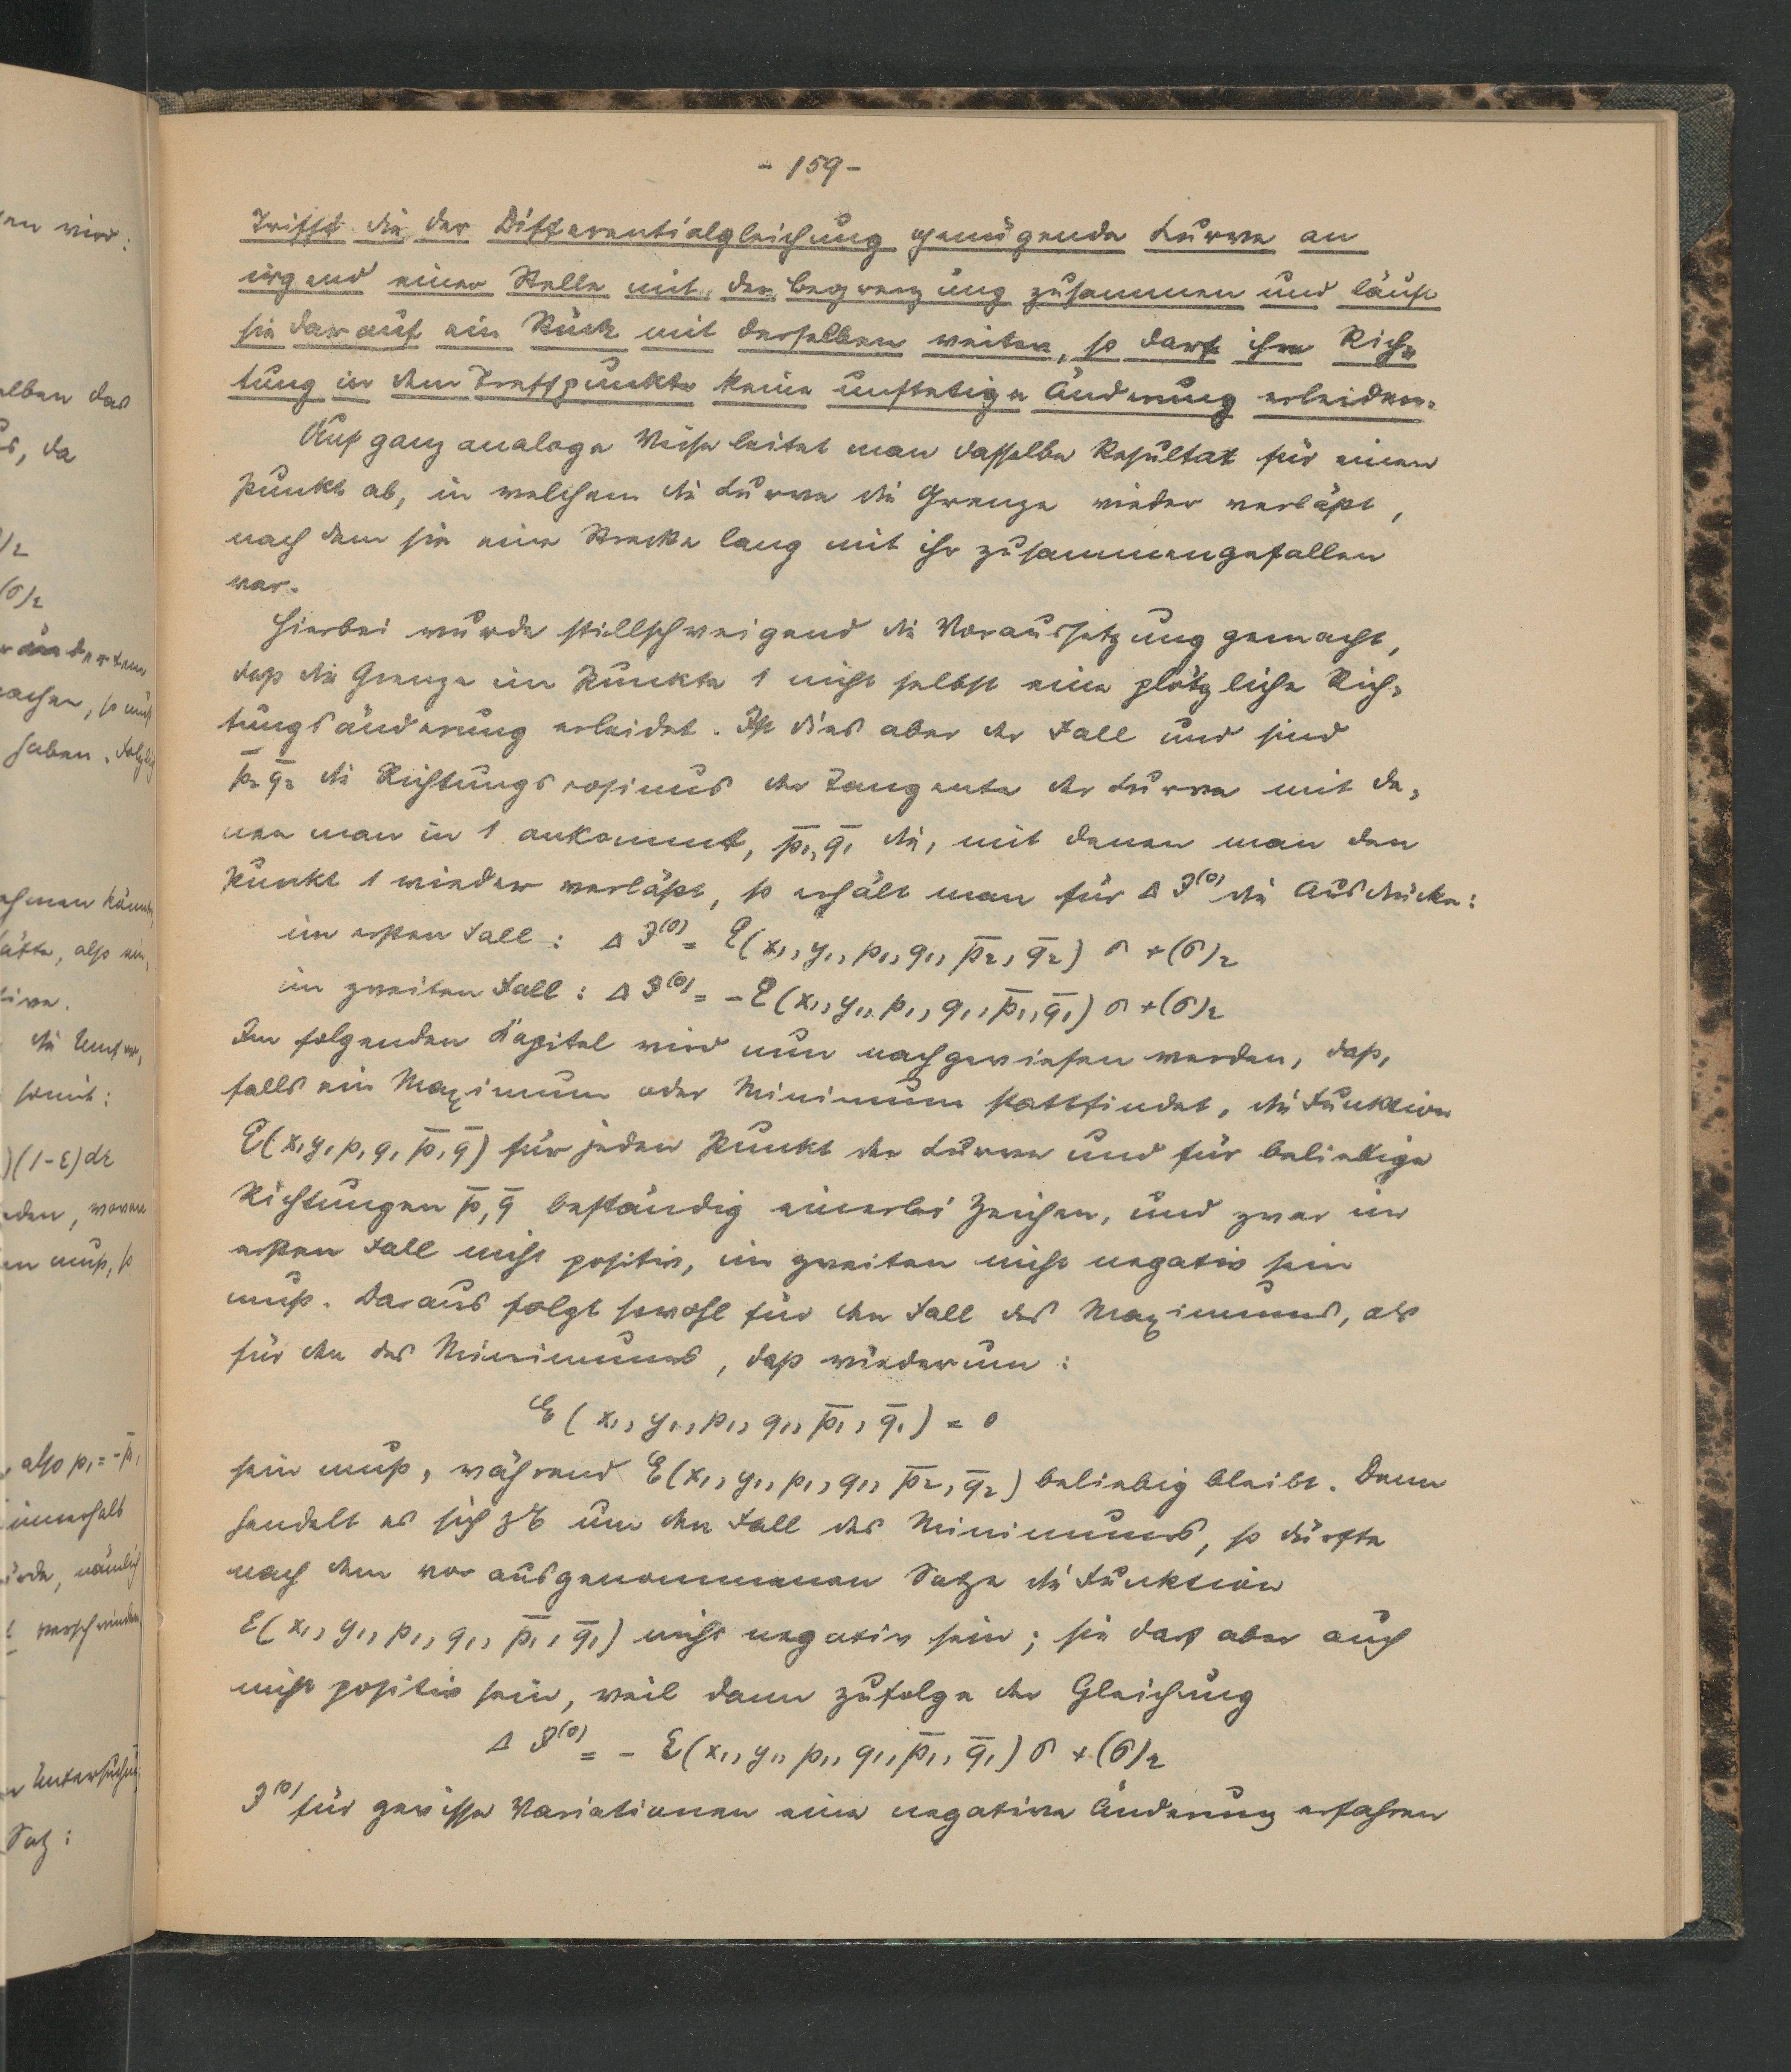 - 159 -
Trifft die der Differentialgleichung genügende Kurve an
irgend einer Stelle mit der Begrenzung zusammen und läuft
sie darauf ein Stück mit derselben weiter, so darf ihre Rich-
tung in dem Treffpunkte keine unstetige Änderung erleiden.
Auf ganz analoge Weise leitet man dasselbe Resultat für einen
Punkt ab, in welchem die Kurve die Grenze wieder verläßt,
nach dem sie eine Strecke lang mit ihr zusammengefallen
war.
Hierbei wurde stillschweigend die Voraussetzung gemacht,
daß die Grenze im Punkte 1 nicht selbst eine plötzliche Rich-
tungsänderung erleidet. Ist dies aber der Fall und sind
p̄₂ q̄₂ die Richtungscosinus der Tangente der Kurve mit de-
nen man in 1 ankommt, p̄₁, q̄₁ die, mit denen man den
Punkt 1 wieder verläßt, so erhält man für Δ J⁽⁰⁾ die Ausdrücke:
im ersten Fall: Δ J⁽⁰⁾ = E(x₁, y₁, p₁, q₁, p̄₂, q̄₂) σ + (σ)₂
im zweiten Fall: Δ J⁽⁰⁾ = - E(x₁, y₁, p₁, q₁, p̄₁, q̄₁) σ + (σ)₂
Im folgenden Kapitel wird nun nachgewiesen werden, daß,
falls ein Maximum oder Minimum stattfindet, die Funktion
E(x, y, p, q, p̄, q̄) für jeden Punkt der Kurve und für beliebige
Richtungen p̄, q̄ beständig einerlei Zeichen, und zwar im
ersten Fall nicht positiv, im zweiten nicht negativ sein
muß. Daraus folgt sowohl für den Fall des Maximums, als
für den des Minimums, daß wiederum:
E(x₁, y₁, p₁, q₁, p̄₁, q̄₁) = 0
sein muß, während E(x₁, y₁, p₁, q₁, p̄₂, q̄₂) beliebig bleibt. Denn
handelt es sich zB um den Fall des Minimums, so dürfte
nach dem vorausgenommenen Satze die Funktion
E(x₁, y₁, p₁, q₁, p̄₁, q̄₁) nicht negativ sein; sie darf aber auch
nicht positiv sein, weil dann zufolge der Gleichung
Δ J⁽⁰⁾ = - E(x₁, y₁, p₁, q₁, p̄₁, q̄₁) σ + (σ)₂
J⁽⁰⁾ für gewisse Variationen eine negative Änderung erfahren